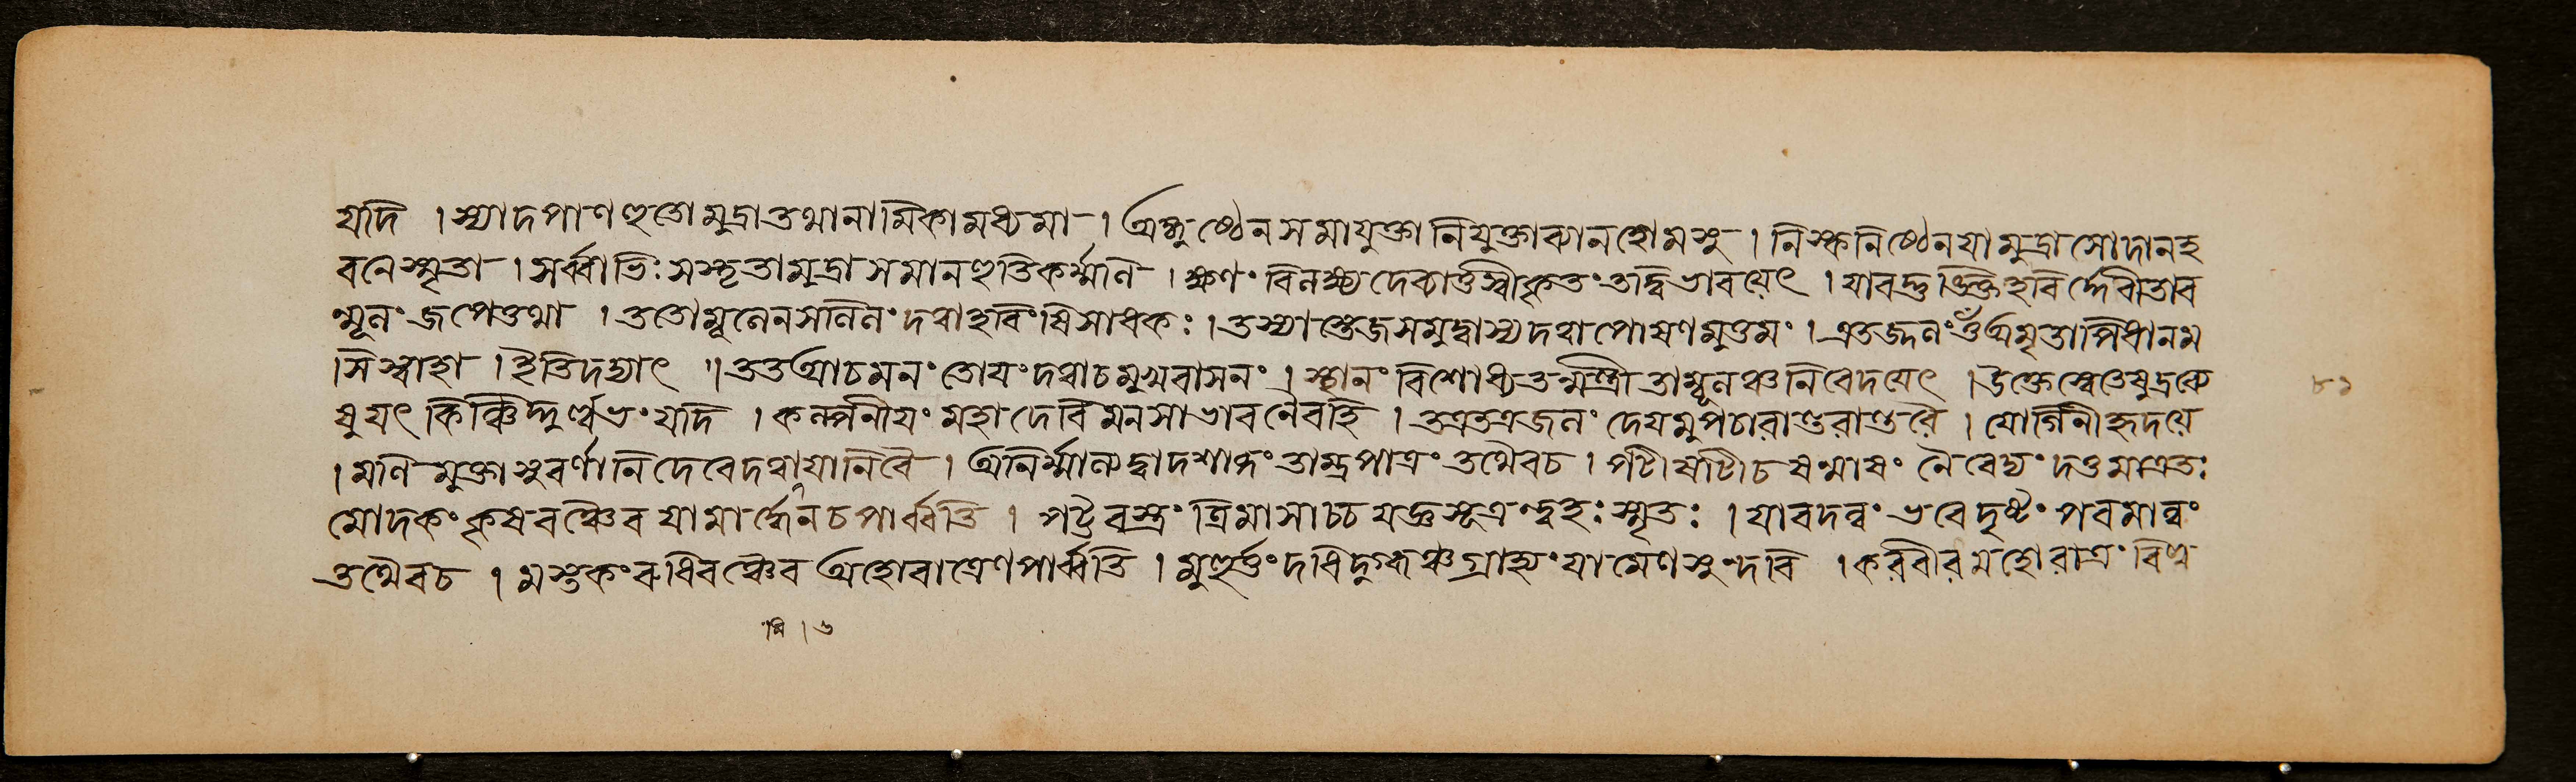 যদি । স্যাদপাণহুতো মুদ্রাতথানামিকামধ্যমা । অঙ্গুষ্ঠেনসমাযুক্তানিযুক্তাব্যানহোমসু । নিস্কনিষ্ঠেনযামুদ্রাসোদানহ
বনেস্মৃতা । সর্ব্বাভিঃ সস্তৃতামুদ্রাসমানহুতিকর্ম্মানি । ক্ষণং বিনক্ষ্য দেব্যার্ত্তস্বীকৃতং তদ্বিভাবয়েৎ । যাবদ্ভুঙ্ক্তিহবির্দ্দেবীতাব
ন্মূনং জপেত্তথা । ততোমূনেনসনিনং দদ্যাহবিংষিসাধকঃ । তস্যাস্তেজসমুদ্বাস্যদদ্যাপোষণমুত্তমং । এতজ্জনং ওঁঅমৃতাপিধানম
সিস্বাহা । ইতিদদ্যাৎ ॥ ততআচমনং তোযং দদ্যাচমুখবাসনং । স্থানং বিশোধ্যতন্মন্ত্রী তাম্বূনঞ্চনিবেদযেৎ । উক্তেস্বেতেষুদ্রব্যে
ষুযৎ কিঞ্চিদ্দুর্ণ্ণভং যদি । কনপনীযং মহাদেবিমনসাভাবনৈবহি । তত্রতত্রজনং দেযমুপচারান্তরান্তরে । যোগিনীহৃদযে
। মণিমুক্তাসুবর্ণানিদেবেদদ্যাযানিবৈ । অনির্ম্মান্যদ্বাদশাব্দং তাম্রপাত্রং তথৈবচ । পটীষটীচষন্মাষং নৈবেদ্যং দত্তমাত্রতঃ
মোদকং কৃষরঞ্চৈব যামার্দ্ধেনচপার্ব্বতি । পট্টবস্ত্রং ত্রিমাসাচ্চযজ্ঞসূত্রন্দ্বহঃ স্মৃতঃ । যাবদন্নং ভবেদৃষ্টং পরমান্নং
তথৈবচ । মস্তকংরুধিরঞ্চৈব অহোরাত্রেণপার্ব্বতি । মুহূর্ত্তং দধিদুগ্ধঞ্চগ্রাহ্যং যামেণসুন্দরি । করবীরমহোরাত্রং বিল্ব
৮১